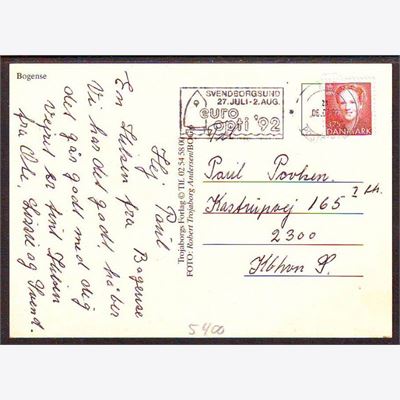 Bogense
Hej Paul
En hilsen fra Bogense
Vi har det godt, håber
det går godt med dig
vejret er fint hilsen
fra Ole, Lissie og Svend.
Trojaborgs Forlag © Tlf. 02 54 58 00
FOTO: Robert Trojaborg Andersen/BOG
SVENDBORGSUND
27. JULI - 2. AUG.
euro
opti '92
DANMARK
Paul Povlsen
Kastrupvej 165
2300
Kbhvn S.
5400